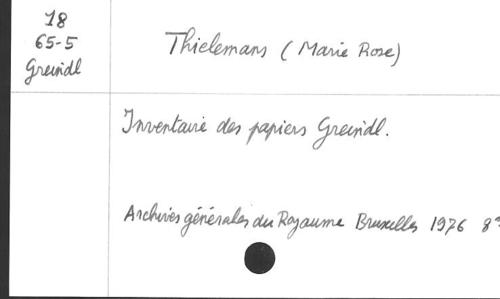 18
65-5
Greindl
Thielemans (Marie Rose)
Inventaire des papiers Greindl.
Archives générales du Royaume Bruxelles 1976 8°